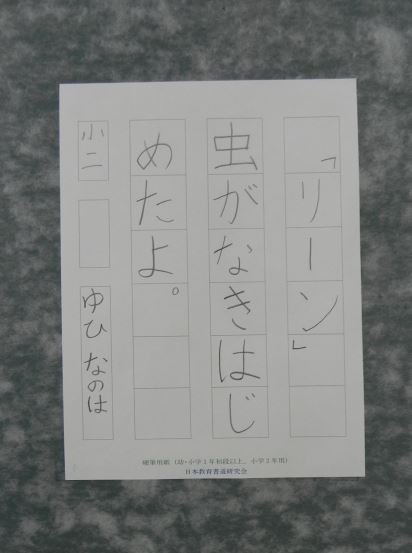 「リーン」
虫がなきはじ
めたよ。
小二
ゆひ なのは
硬筆用紙(幼・小学1年初段以上、小学2年用)
日本教育書道研究会